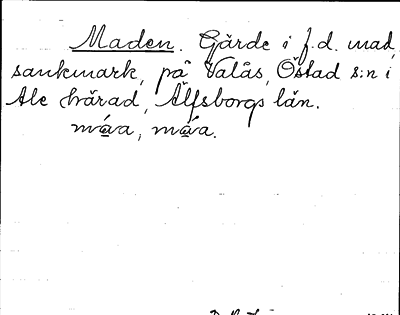 Maden. Gärde i f.d. mad,
sankmark, på Valås, Östad s:n i
Ale härad, Älfsborgs län.
måa, måa.